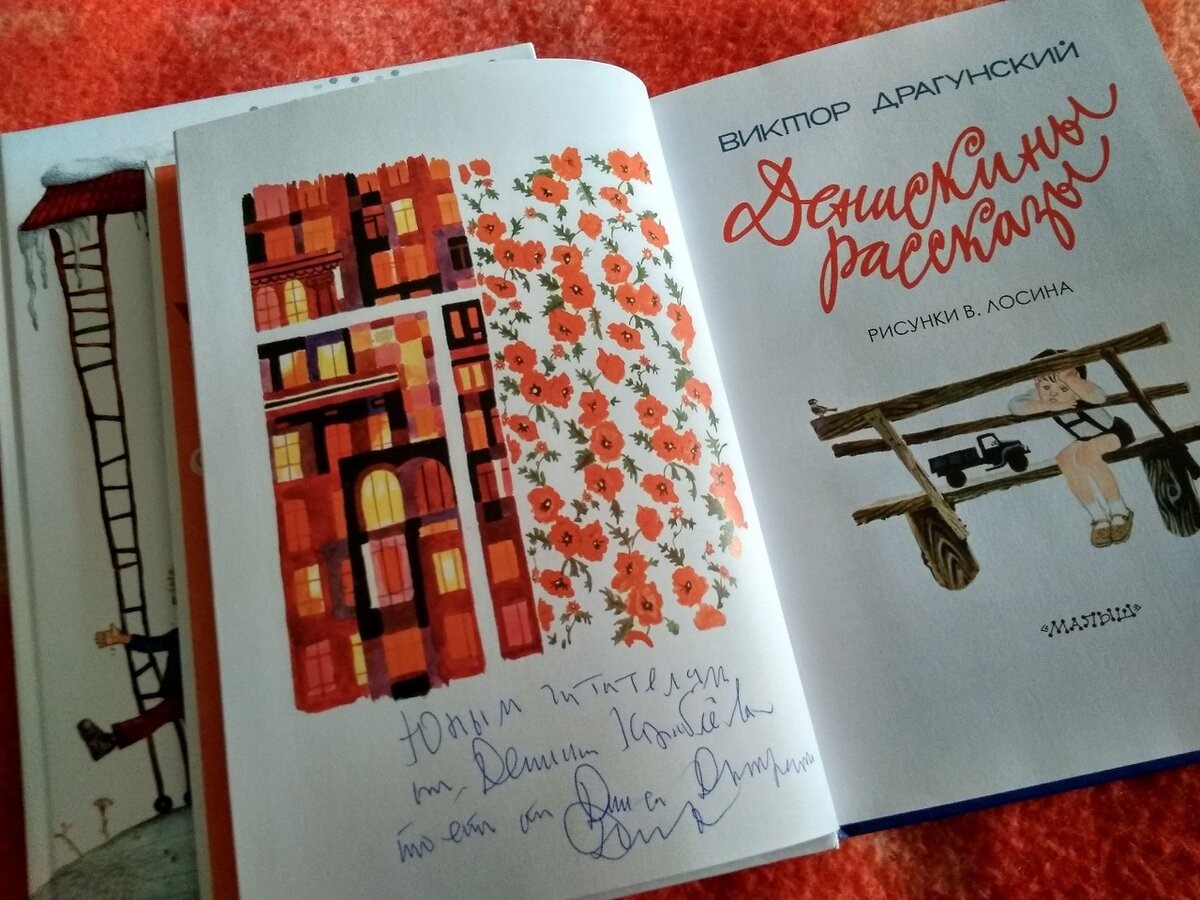 Юным читателям
от Дениски Кораблёва
то есть от Дениса Драгунского
ВИКТОР ДРАГУНСКИЙ
Денискины
рассказы
РИСУНКИ В. ЛОСИНА
«МАЛЫШ»